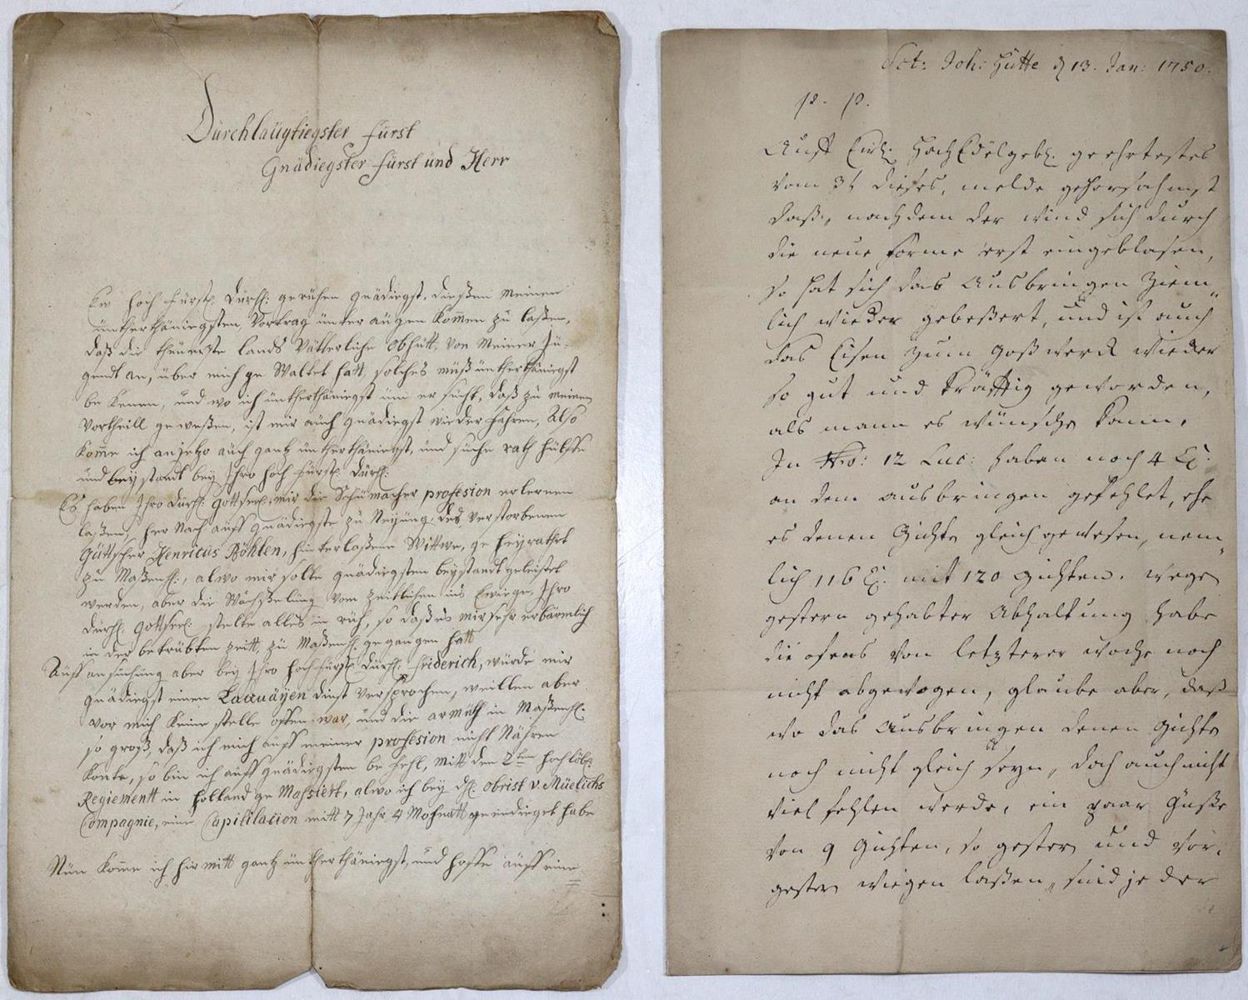 Durchlaügtiegster fürst
Gnädiegster fürst und Herr
Ew hoch fürstl. Dürchl. gerühen gnädigst, dießen meinen
ünterthänigsten Vortrag ünter aügen kom̅en zu laßen,
daß die theüerste lands Vätterliche obhütt, von meiner Jü-
gendt an, über mich ge Waltet hatt, solches muß ünterthänigst
be kenen, und wo ich ünterthänigst üm er sucht, daß zu meinem
Vortheill geweßen, ist mir auch gnädigst wieder fahren, Also
kom̅e ich anjetzo auch gantz ünterthänigst, und suche rath hülffe
und beystandt bey Ihro hoch fürstl. Dürchl.
Es haben Ihro Dürchl. Gottseel. mir die Schumacher profesion erlernen
laßen, her nach auff gnädigste zu Neigüng, des verstorbenen
Henricus Böhlen, hinterlaßene Wittwe, ge heyrathet
zu, alwo mir solte gnädigsten beystandt geleistet
werden, aber die Wächßelüng vom zeitlichen ins Ewige, Ihro
Dürchl. Gottseel. stelte alles in rüh, so daß es mir sehr erbärmlich
in der betrübten zeitt, zu gegangen hatt
Auff ansüchung aber bey Ihro hochfürstl. Dürchl. würde mir
gnädigst einen Laquäyen dienst versprochen, weillen aber
vor mich keine stelle offen war, und die armuth in
so groß, daß ich mich auff meiner profesion nicht Nähren
konte, so bin ich auff gnädigsten be fehl, mitt den 2ten hochlöbl.
Regiementt in holland ge Maschiert, alwo ich bey H. obrist v.
Compagnie, eine Capitilation mitt 7 Jahr 4 Mohnatt geendieget habe
Nün kom̅e ich hir mitt gantz ünterthänigst, und hoffe aüff eine
Sct: Joh: Hütte d 13. Jan: 1750.
p. p.
Auff Hochedelgeb. geehrtestes
vom dießes, melde gehorsahmst
daß, nachdem der wind sich durch
die neue Forme erst eingeblasen,
so hat sich das Ausbringen ziem-
lich wieder gebeßert, und ist auch
das Eisen zum Goßwerck wieder
so gut und kräfftig geworden,
als mann es wünschen kann.
In No: 12 Luc: haben noch 4
an dem ausbringen gefehlet, ehe
es denen Gichten gleich gewesen, nem-
lich 116 mit 120 Gichten. Wegen
gestern gehabter Abhaltung habe
die von letzterer woche noch
nicht abgewogen, glaube aber, daß
wo das Ausbringen denen Gichten
noch nicht gleich seyn, doch auch nicht
viel fehlen werde, ein paar Güße
von 9 Gichten, so gestern und vor-
gestern wiegen laßen, sind jeder